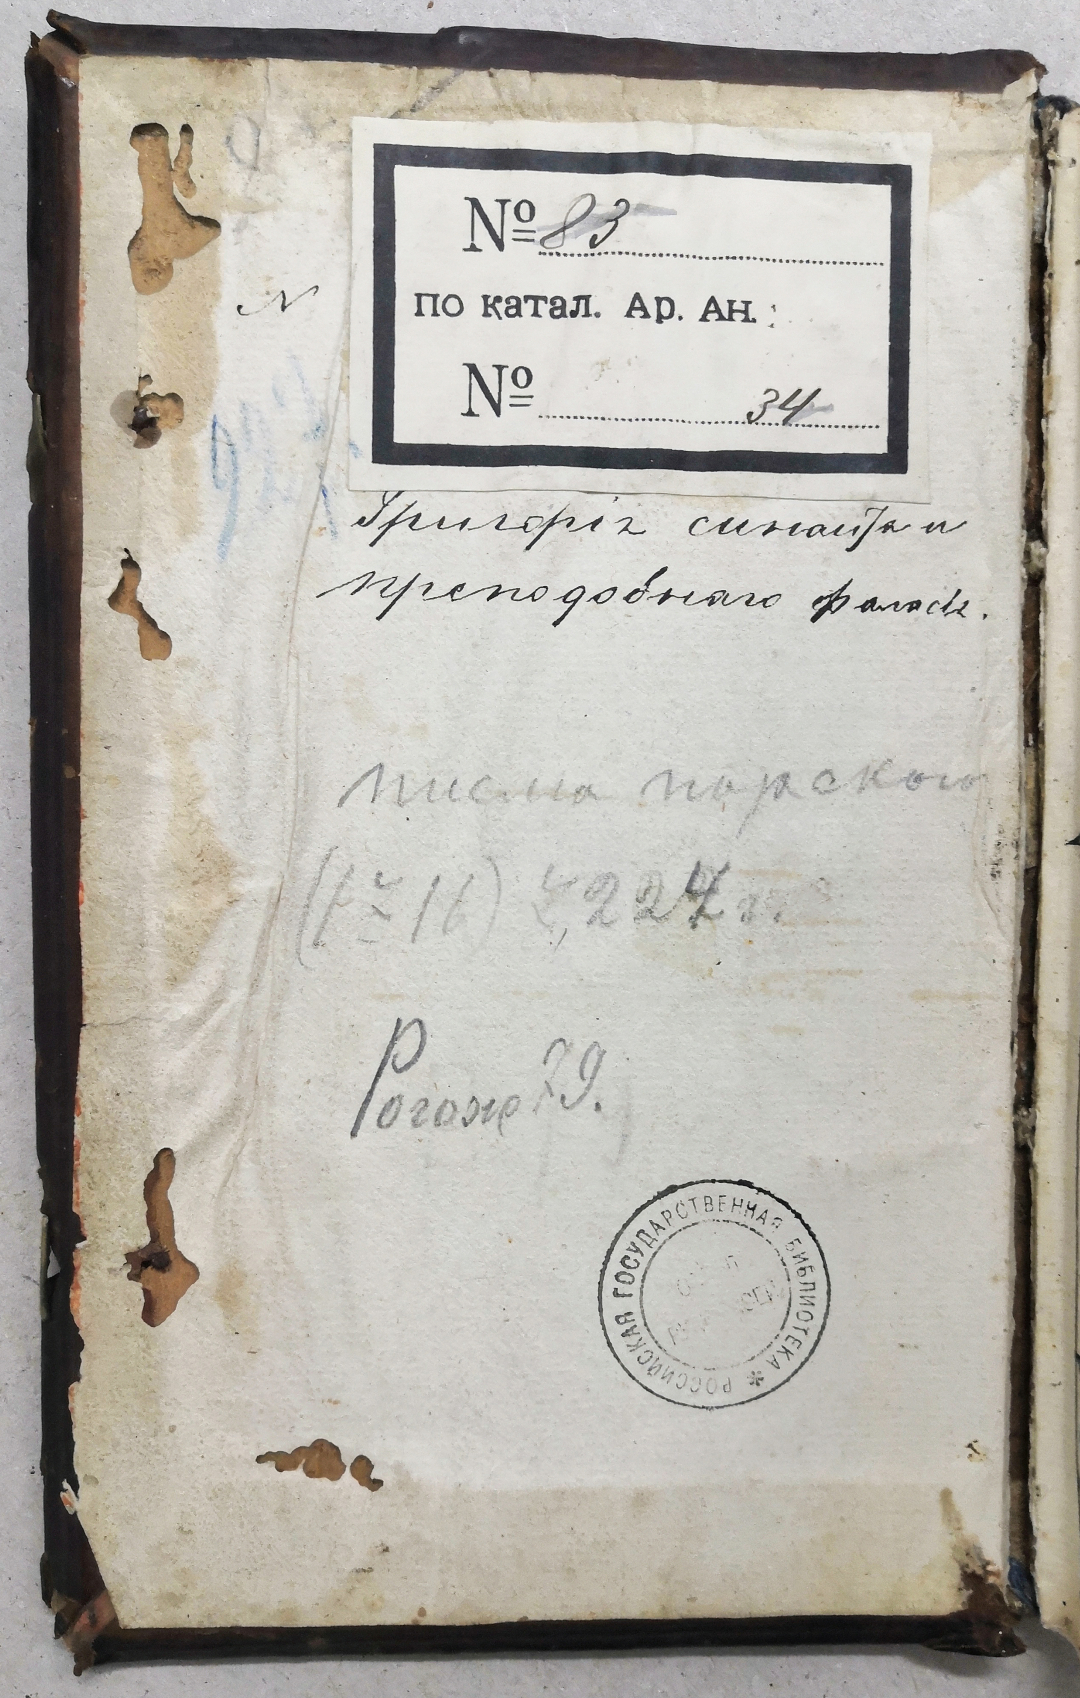 № 83
по катал. Ар. Ан.
№ 34
N
Григоріа синаита и
преподобнаго
писмо
(16) 224
Рогож 79.
РОССИЙСКАЯ ГОСУДАРСТВЕННАЯ БИБЛИОТЕКА *